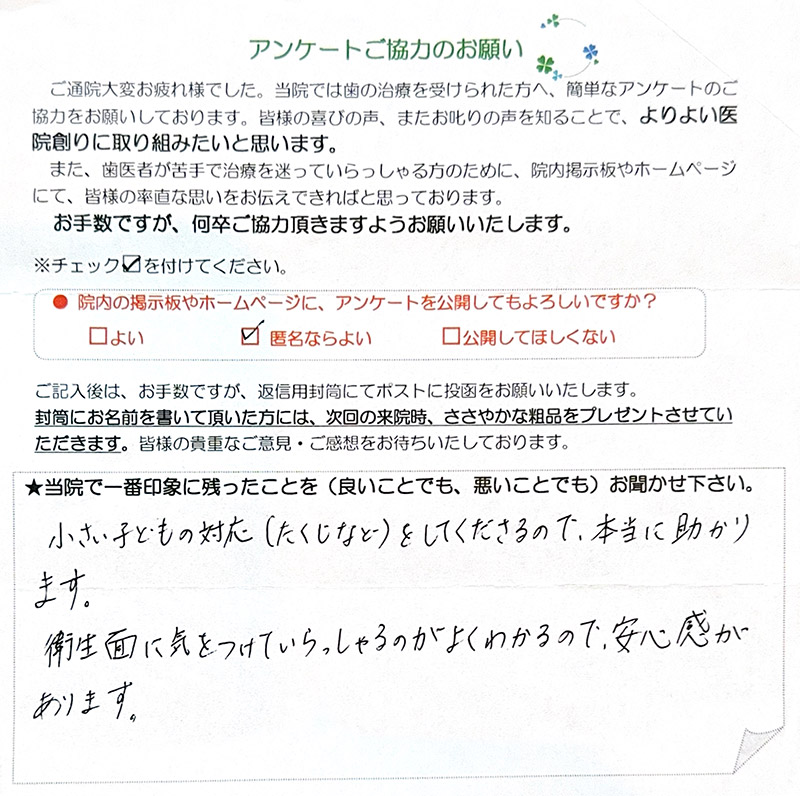 アンケートご協力のお願い
ご通院大変お疲れ様でした。当院では歯の治療を受けられた方へ、簡単なアンケートのご
協力をお願いしております。皆様の喜びの声、またお叱りの声を知ることで、よりよい医
院創りに取り組みたいと思います。
また、歯医者が苦手で治療を迷っていらっしゃる方のために、院内掲示板やホームページ
にて、皆様の率直な思いをお伝えできればと思っております。
お手数ですが、何卒ご協力頂きますようお願いいたします。
※チェック☑を付けてください。
● 院内の掲示板やホームページに、アンケートを公開してもよろしいですか？
□よい ☑匿名ならよい □公開してほしくない
ご記入後は、お手数ですが、返信用封筒にてポストに投函をお願いいたします。
封筒にお名前を書いて頂いた方には、次回の来院時、ささやかな粗品をプレゼントさせてい
ただきます。皆様の貴重なご意見・ご感想をお待ちいたしております。
★当院で一番印象に残ったことを（良いことでも、悪いことでも）お聞かせ下さい。
小さい子どもの対応（たくじなど）をしてくださるので、本当に助かり
ます。
衛生面に気をつけていらっしゃるのがよくわかるので、安心感が
あります。